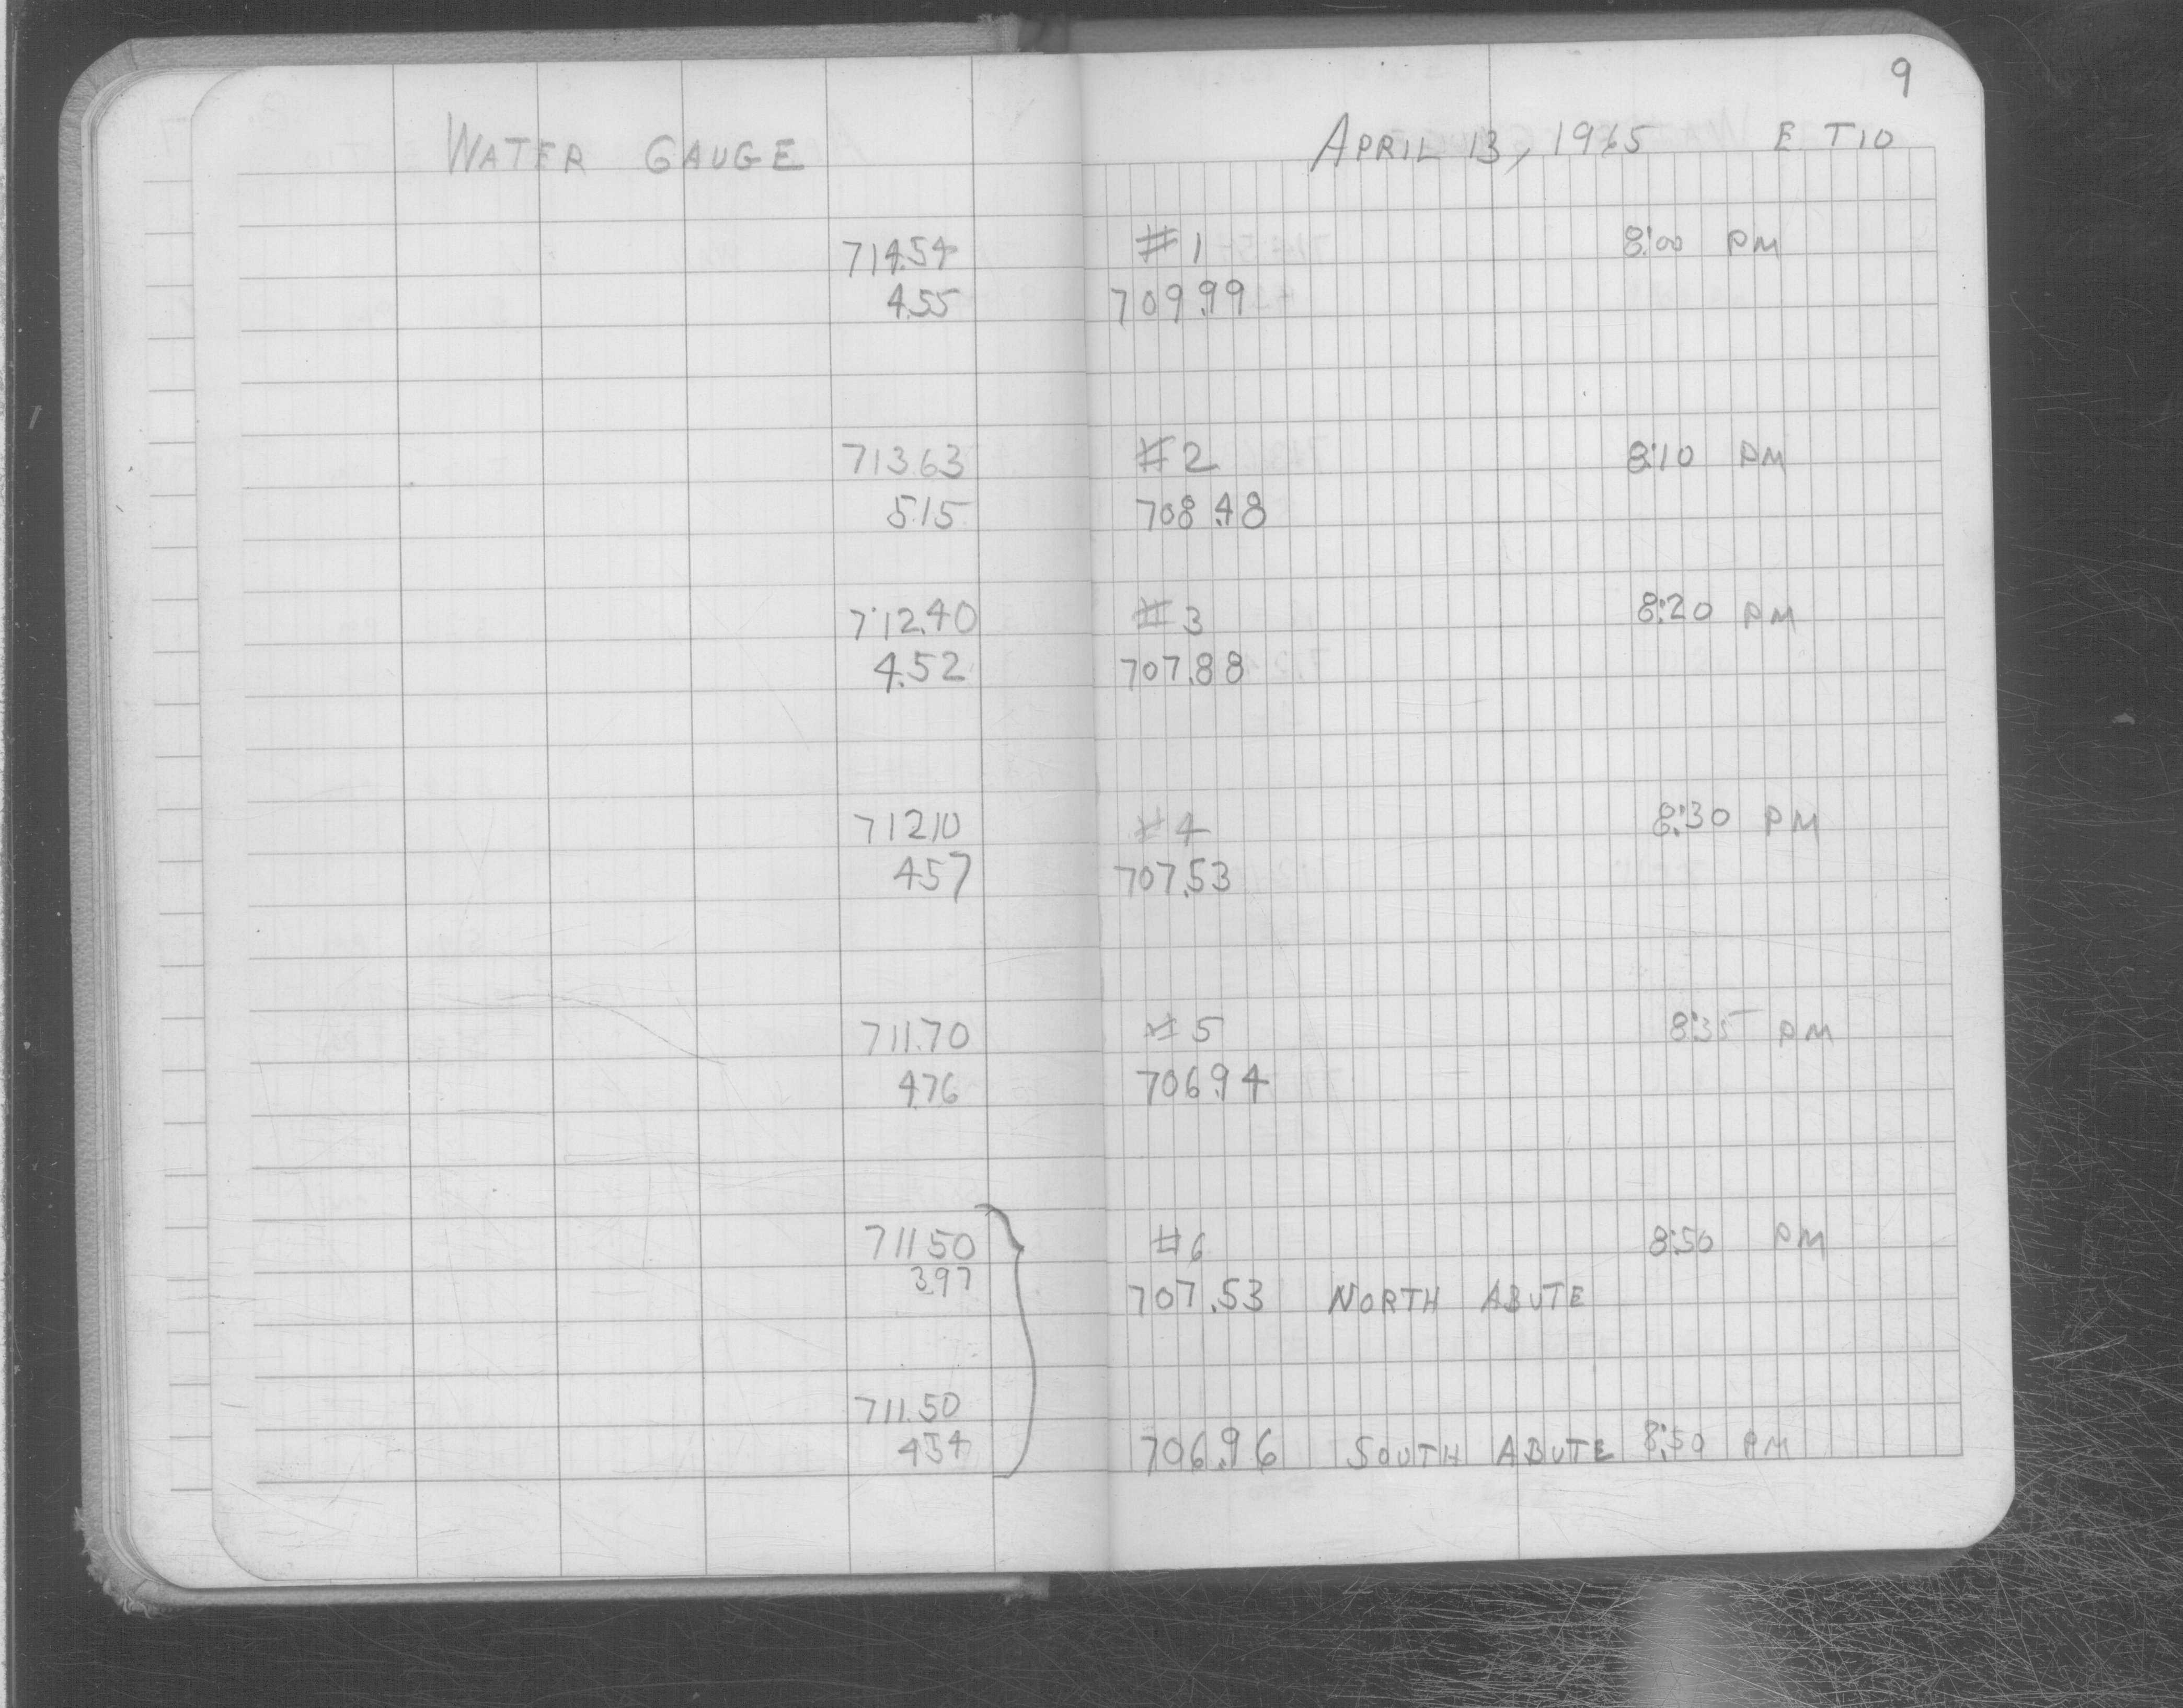 9
WATER GAUGE APRIL 13, 1965 E T10
714.54 #1 8:00 PM
4.55 709.99
713.63 #2 8:10 PM
5.15 708.48
712.40 #3 8:20 PM
4.52 707.88
712.10 #4 8:30 PM
4.57 707.53
711.70 #5 8:35 PM
4.76 706.94
711.50 #6 8:50 PM
3.97 707.53 NORTH ABUTE
711.50
4.54 706.96 SOUTH ABUTE 8:50 PM